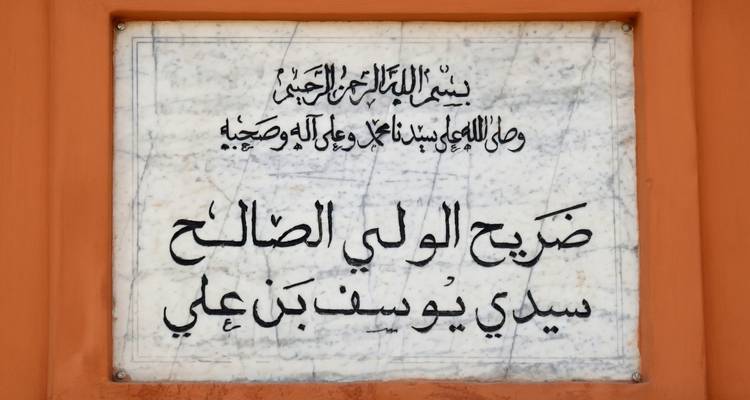 بسم الله الرحمن الرحيم
وصلى الله على سيدنا محمد وعلى آله وصحبه
ضَريح الولي الصالح
سيدي يوسف بَن علي